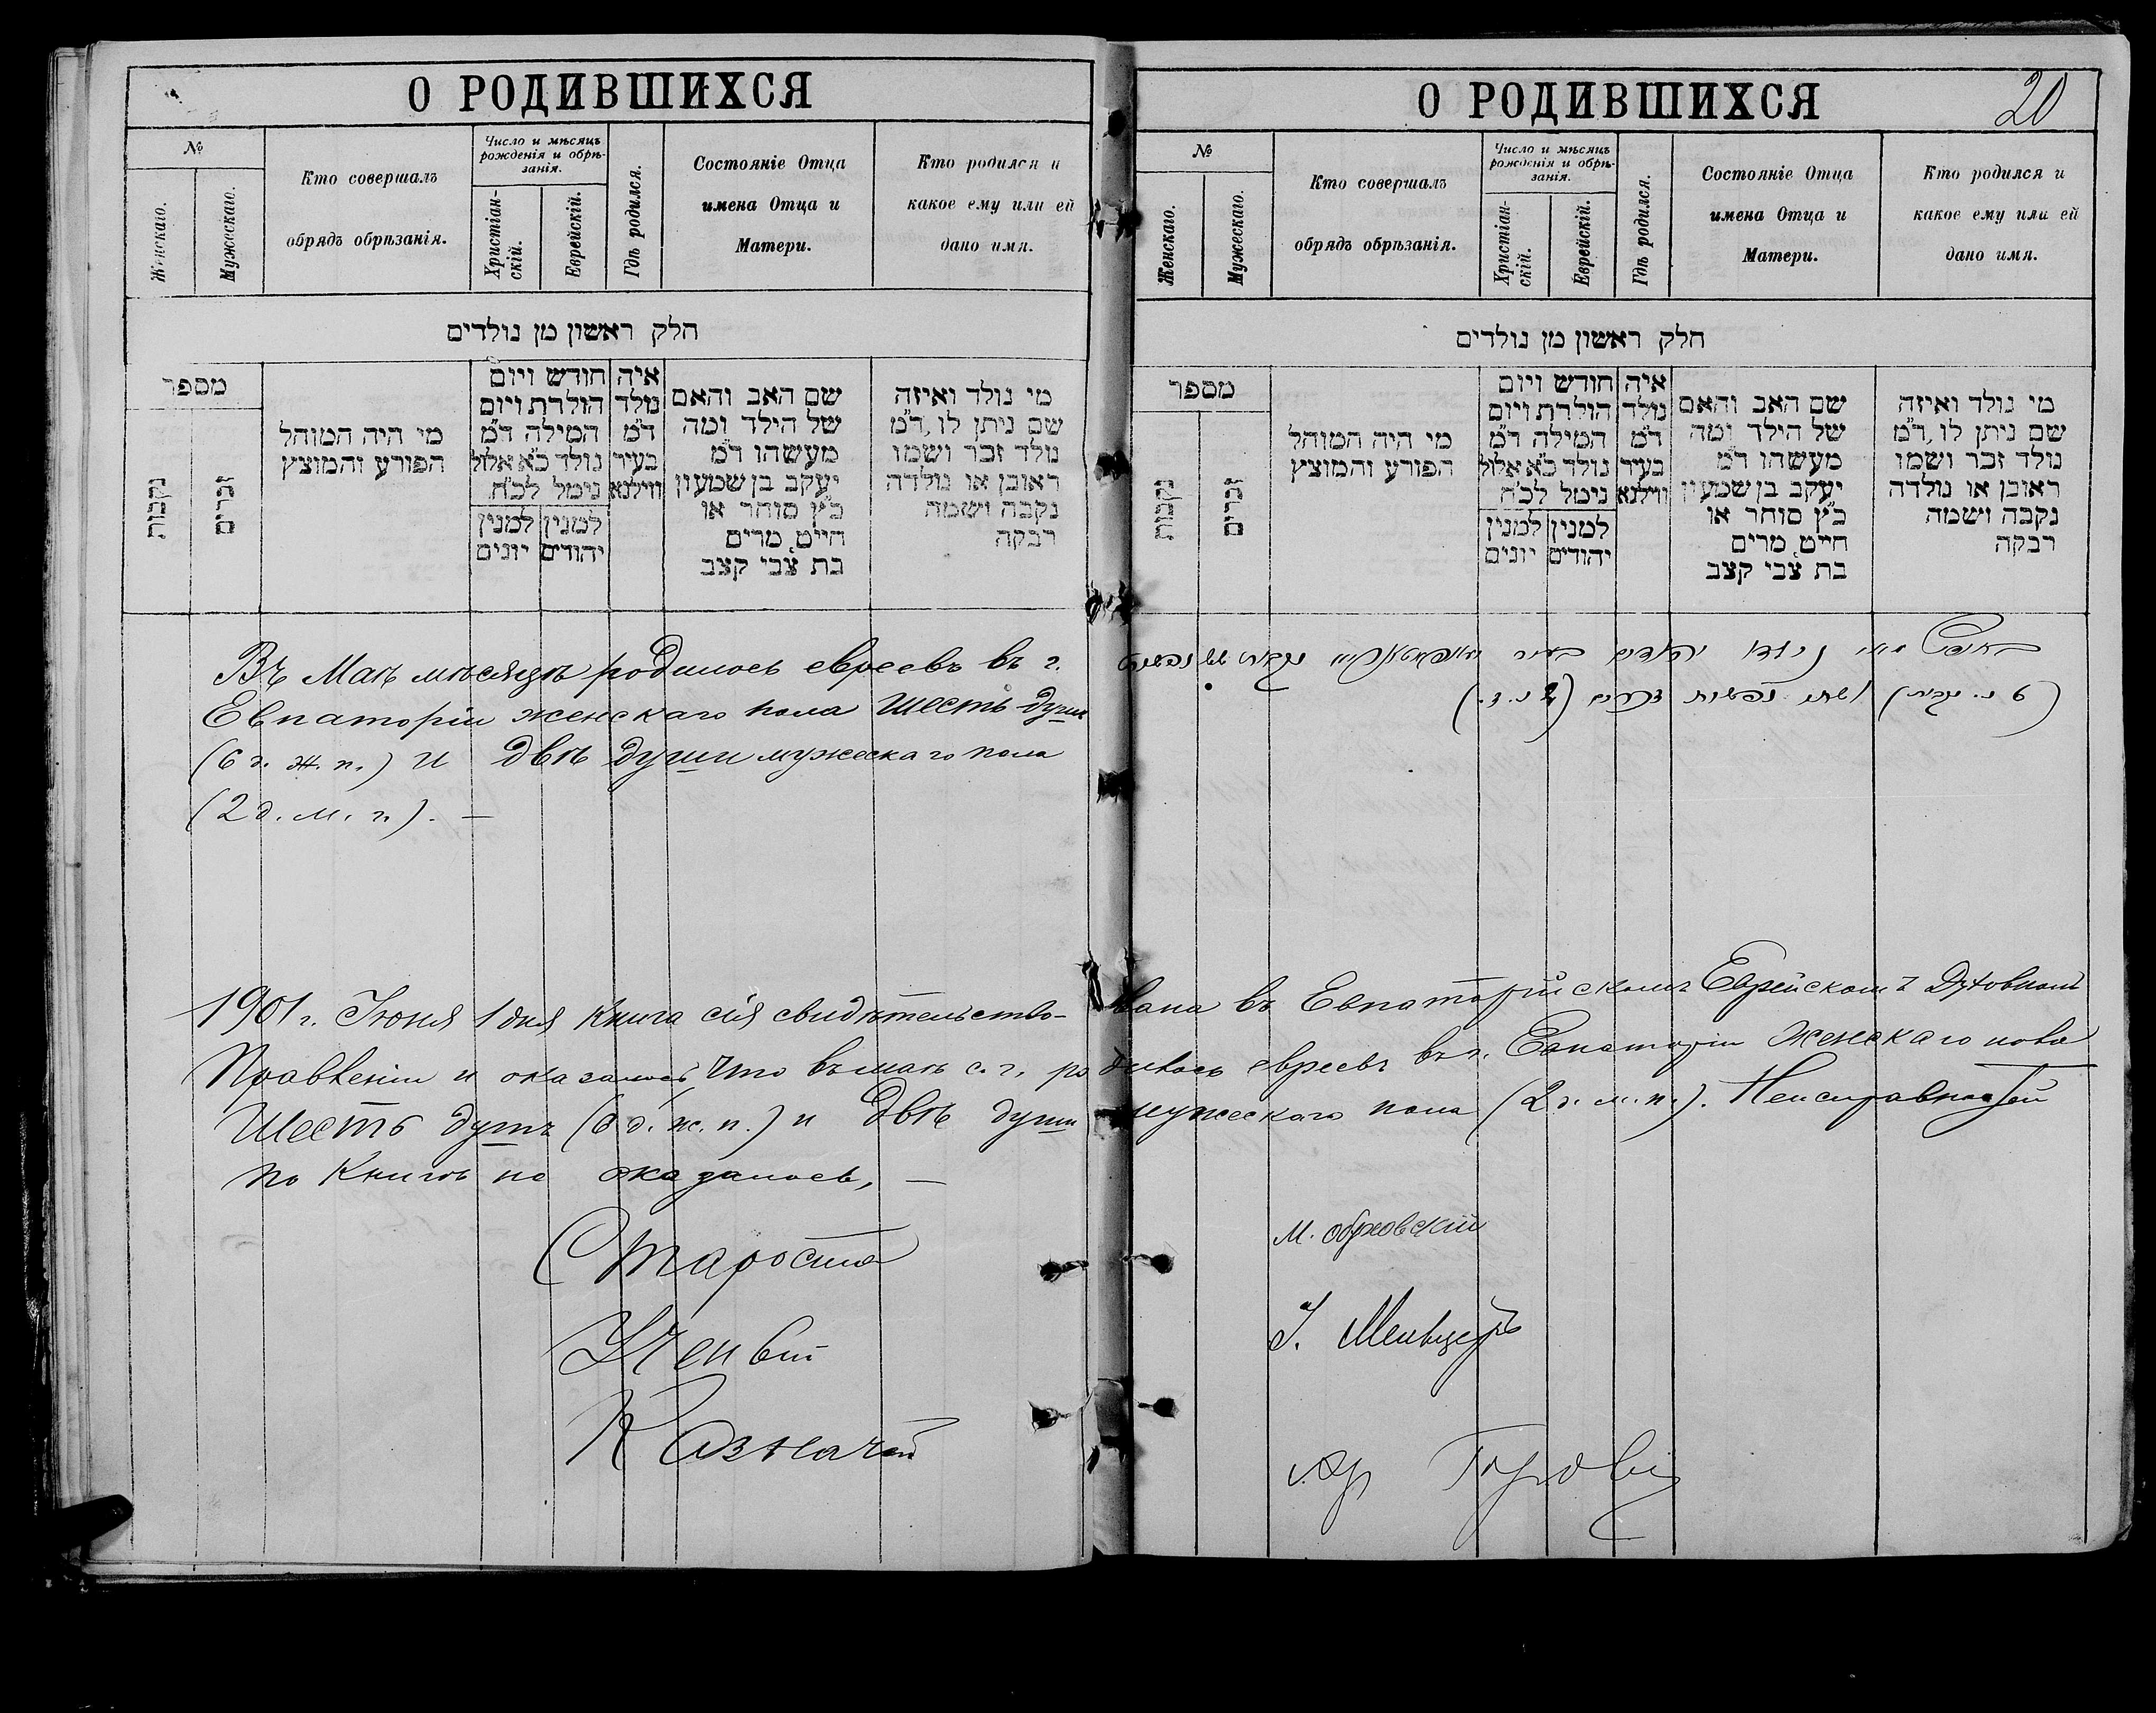 О РОДИВШИХСЯ
№
Женскаго.
Мужескаго.
Кто совершалъ
обрядъ обрѣзанія.
Число и мѣсяцъ
рожденія и обрѣ-
занія.
Христіан-
скій.
Еврейскій.
Гдѣ родился.
Состояніе Отца
имена Отца и
Матери.
Кто родился и
какое ему или ей
дано имя.
חלק ראשון מן נולדים
מספר
נקבות
זכרים
מי היה המוהל
הפורע והמוצץ
חודש ויום
הולדת ויום
המילה ד״מ
נולד כ״א אלול
נימל לכ״ח
למנין
יונים
למנין
יהודים
איה
נולד
ד״מ
בעיר
ווילנא
שם האב והאם
של הילד ומה
מעשהו ד״מ
יעקב בן שמעון
כ״ץ סוחר או
חייט, מרים
בת צבי קצב
מי נולד ואיזה
שם ניתן לו, ד״מ
נולד זכר ושמו
ראובן או נולדה
נקבה ושמה
רבקה
Въ Маѣ мѣсяцѣ родилось евреевъ въ г.
Евпаторіи женскаго пола шесть душъ
(6 д. ж. п.) и двѣ души мужескаго пола
(2 д. м. п.). —
О РОДИВШИХСЯ
20
№
Женскаго.
Мужескаго.
Кто совершалъ
обрядъ обрѣзанія.
Число и мѣсяцъ
рожденія и обрѣ-
занія.
Христіан-
скій.
Еврейскій.
Гдѣ родился.
Состояніе Отца
имена Отца и
Матери.
Кто родился и
какое ему или ей
дано имя.
חלק ראשון מן נולדים
מספר
נקבות
זכרים
מי היה המוהל
הפורע והמוצץ
חודש ויום
הולדת ויום
המילה ד״מ
נולד כ״א אלול
נימל לכ״ח
למנין
יונים
למנין
יהודים
איה
נולד
ד״מ
בעיר
ווילנא
שם האב והאם
של הילד ומה
מעשהו ד״מ
יעקב בן שמעון
כ״ץ סוחר או
חייט, מרים
בת צבי קצב
מי נולד ואיזה
שם ניתן לו, ד״מ
נולד זכר ושמו
ראובן או נולדה
נקבה ושמה
רבקה
בחודש מאי נולדו יהודים בעיר נקבות שש נפשות
ושתי נפשות זכרים
1901 г. Іюня 1 дня книга сія свидѣтельство-вана въ Евпаторійскомъ Еврейскомъ Духовномъ
Правленіи и оказалось, что въ маѣ с. г. родилось евреевъ въ г. Евпаторіи женскаго пола
шесть душъ (6 д. ж. п.) и двѣ души мужескаго пола (2 д. м. п.). Неисправностей
по книгѣ не оказалось, —
Староста
Ученый
Казначей